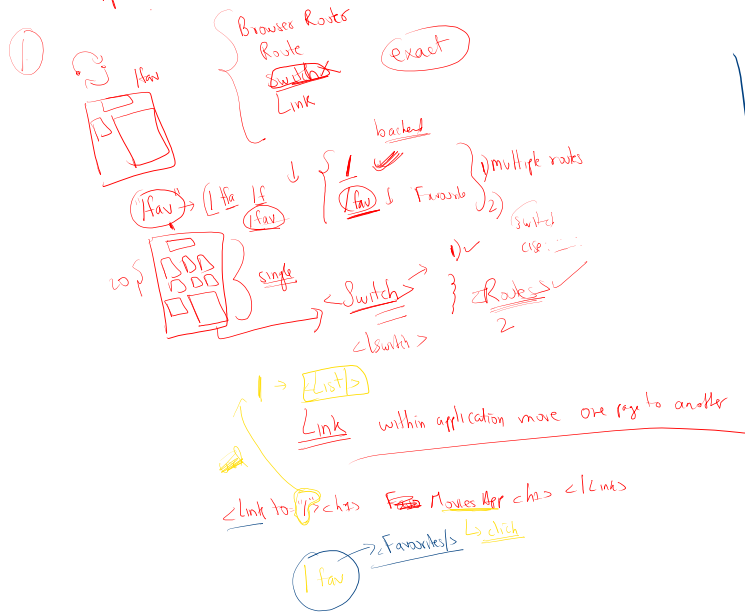 1
Browser Router
Route
Switch
Link
exact
/fav
backend
/
/fav ↓ Favourite
1) multiple routes
2)
switch
case :
"/fav" → / /fa /f
/fav
single
<Switch>
</switch>
1) ✓
<Routes> ✓
2
/ → <List/>
Link within application move one page to another
<Link to="/"><h1> Movies App <h1> </Link>
→ click
/fav → <Favourites/>